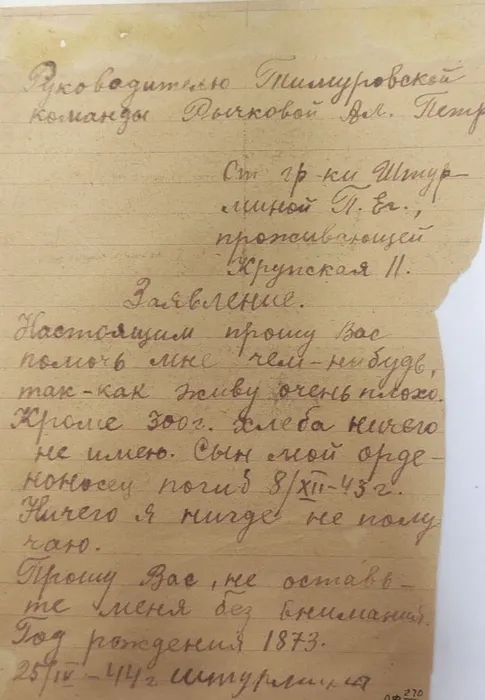 Руководителю Тимуровской
команды Рычковой Ал. Петр
От гр-ки Штур-
миной П. Ег.,
проживающей
Крупская 11.
Заявление.
Настоящим прошу Вас
помочь мне чем-нибудь,
так-как живу очень плохо.
Кроме 300г. хлеба ничего
не имею. Сын мой орде-
ноносец погиб 8/XII-43 г.
Ничего я нигде не полу
чаю.
Прошу Вас, не оставь-
те меня без внимания.
Год рождения 1873.
25/IV-44 г Штурмина
270